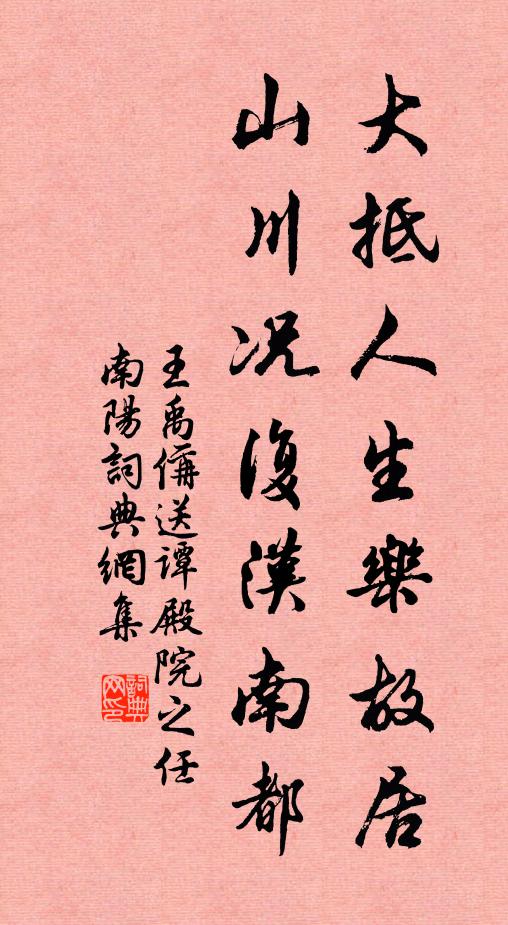 大抵人生樂故居
山川况復漢南都
王禹偁送譚殿院之任
南陽詞典網集
詞典網印